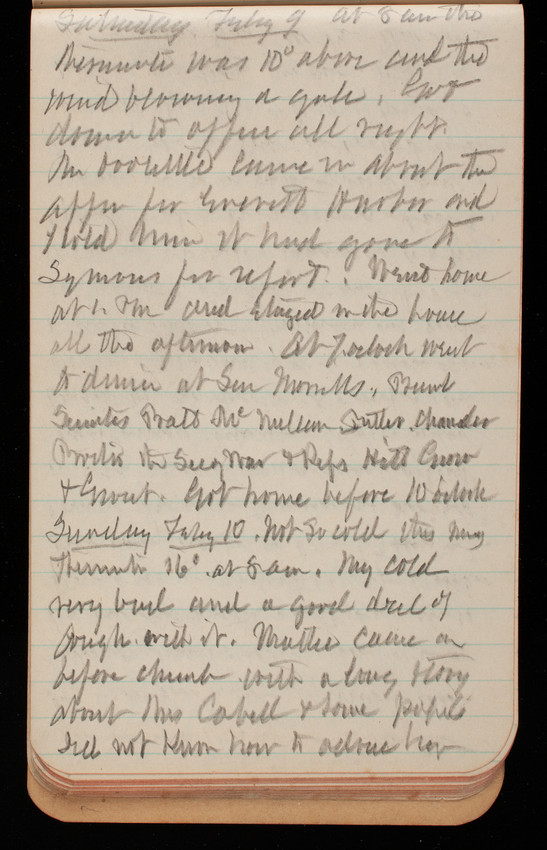 Saturday Feby 9 at 8 am the
Thermomete was 10° above and the
wind blowing a gale. Got
down to office all right.
Mr Doolittle came in about the
affr for Everett Harbor and
I told him it had gone to
Symons for report. Went home
at 1. Pm and stayed in the house
all the afternoon. At 7 oclock went
to dinner at Sen Morrills,
Pratt McMillan Butler, Chandler
Proctor the Secy War & Reps Hitt Grow
& Grout. Got home before 10 oclock
Sunday Feby 10. Not so cold this mng
Thermomtr 16° at 8 am. My cold
very bad and a good deal of
cough with it. Mattie came in
before church with a long story
about Mrs Cabell & some pupils
I did not know how to advise her